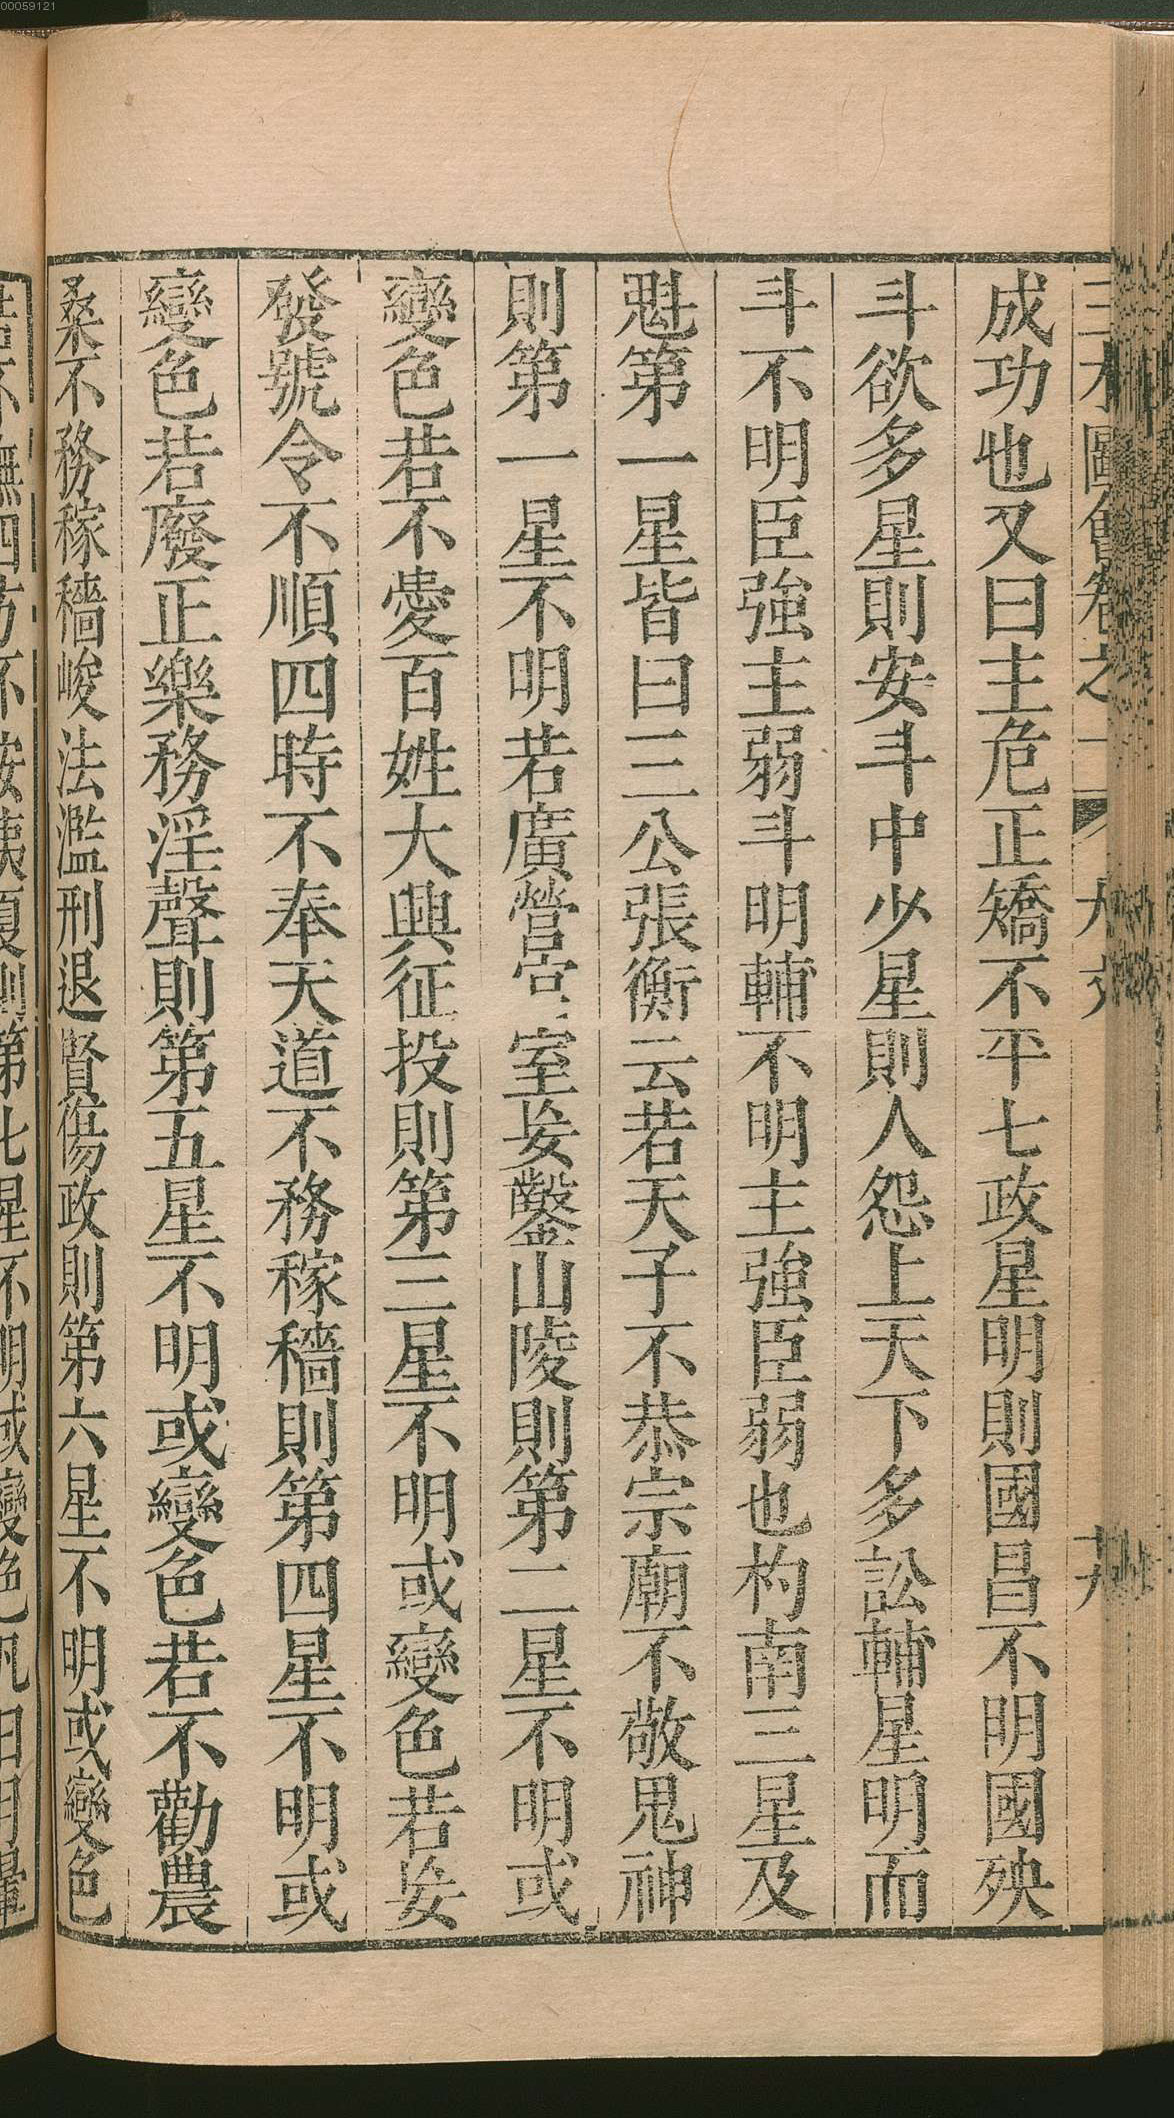 成功也又曰主危正矯不平七政星明則國昌不明國殃
斗欲多星則安斗中少星則人怨上天下多訟輔星明而
斗不明臣強主弱斗明輔不明主強臣弱也杓南三星及
魁第一星皆曰三公張衡云若天子不恭宗廟不敬鬼神
則第一星不明若廣營宮室妄鑿山陵則第二星不明或
變色若不愛百姓大興征投則第三星不明或變色若妄
發號令不順四時不奉天道不務稼穡則第四星不明或
變色若廢正樂務淫聲則第五星不明或變色若不勸農
桑不務稼穡峻法濫刑退賢傷政則第六星不明或變色
第七星不明或變色凡日月暈
00059121